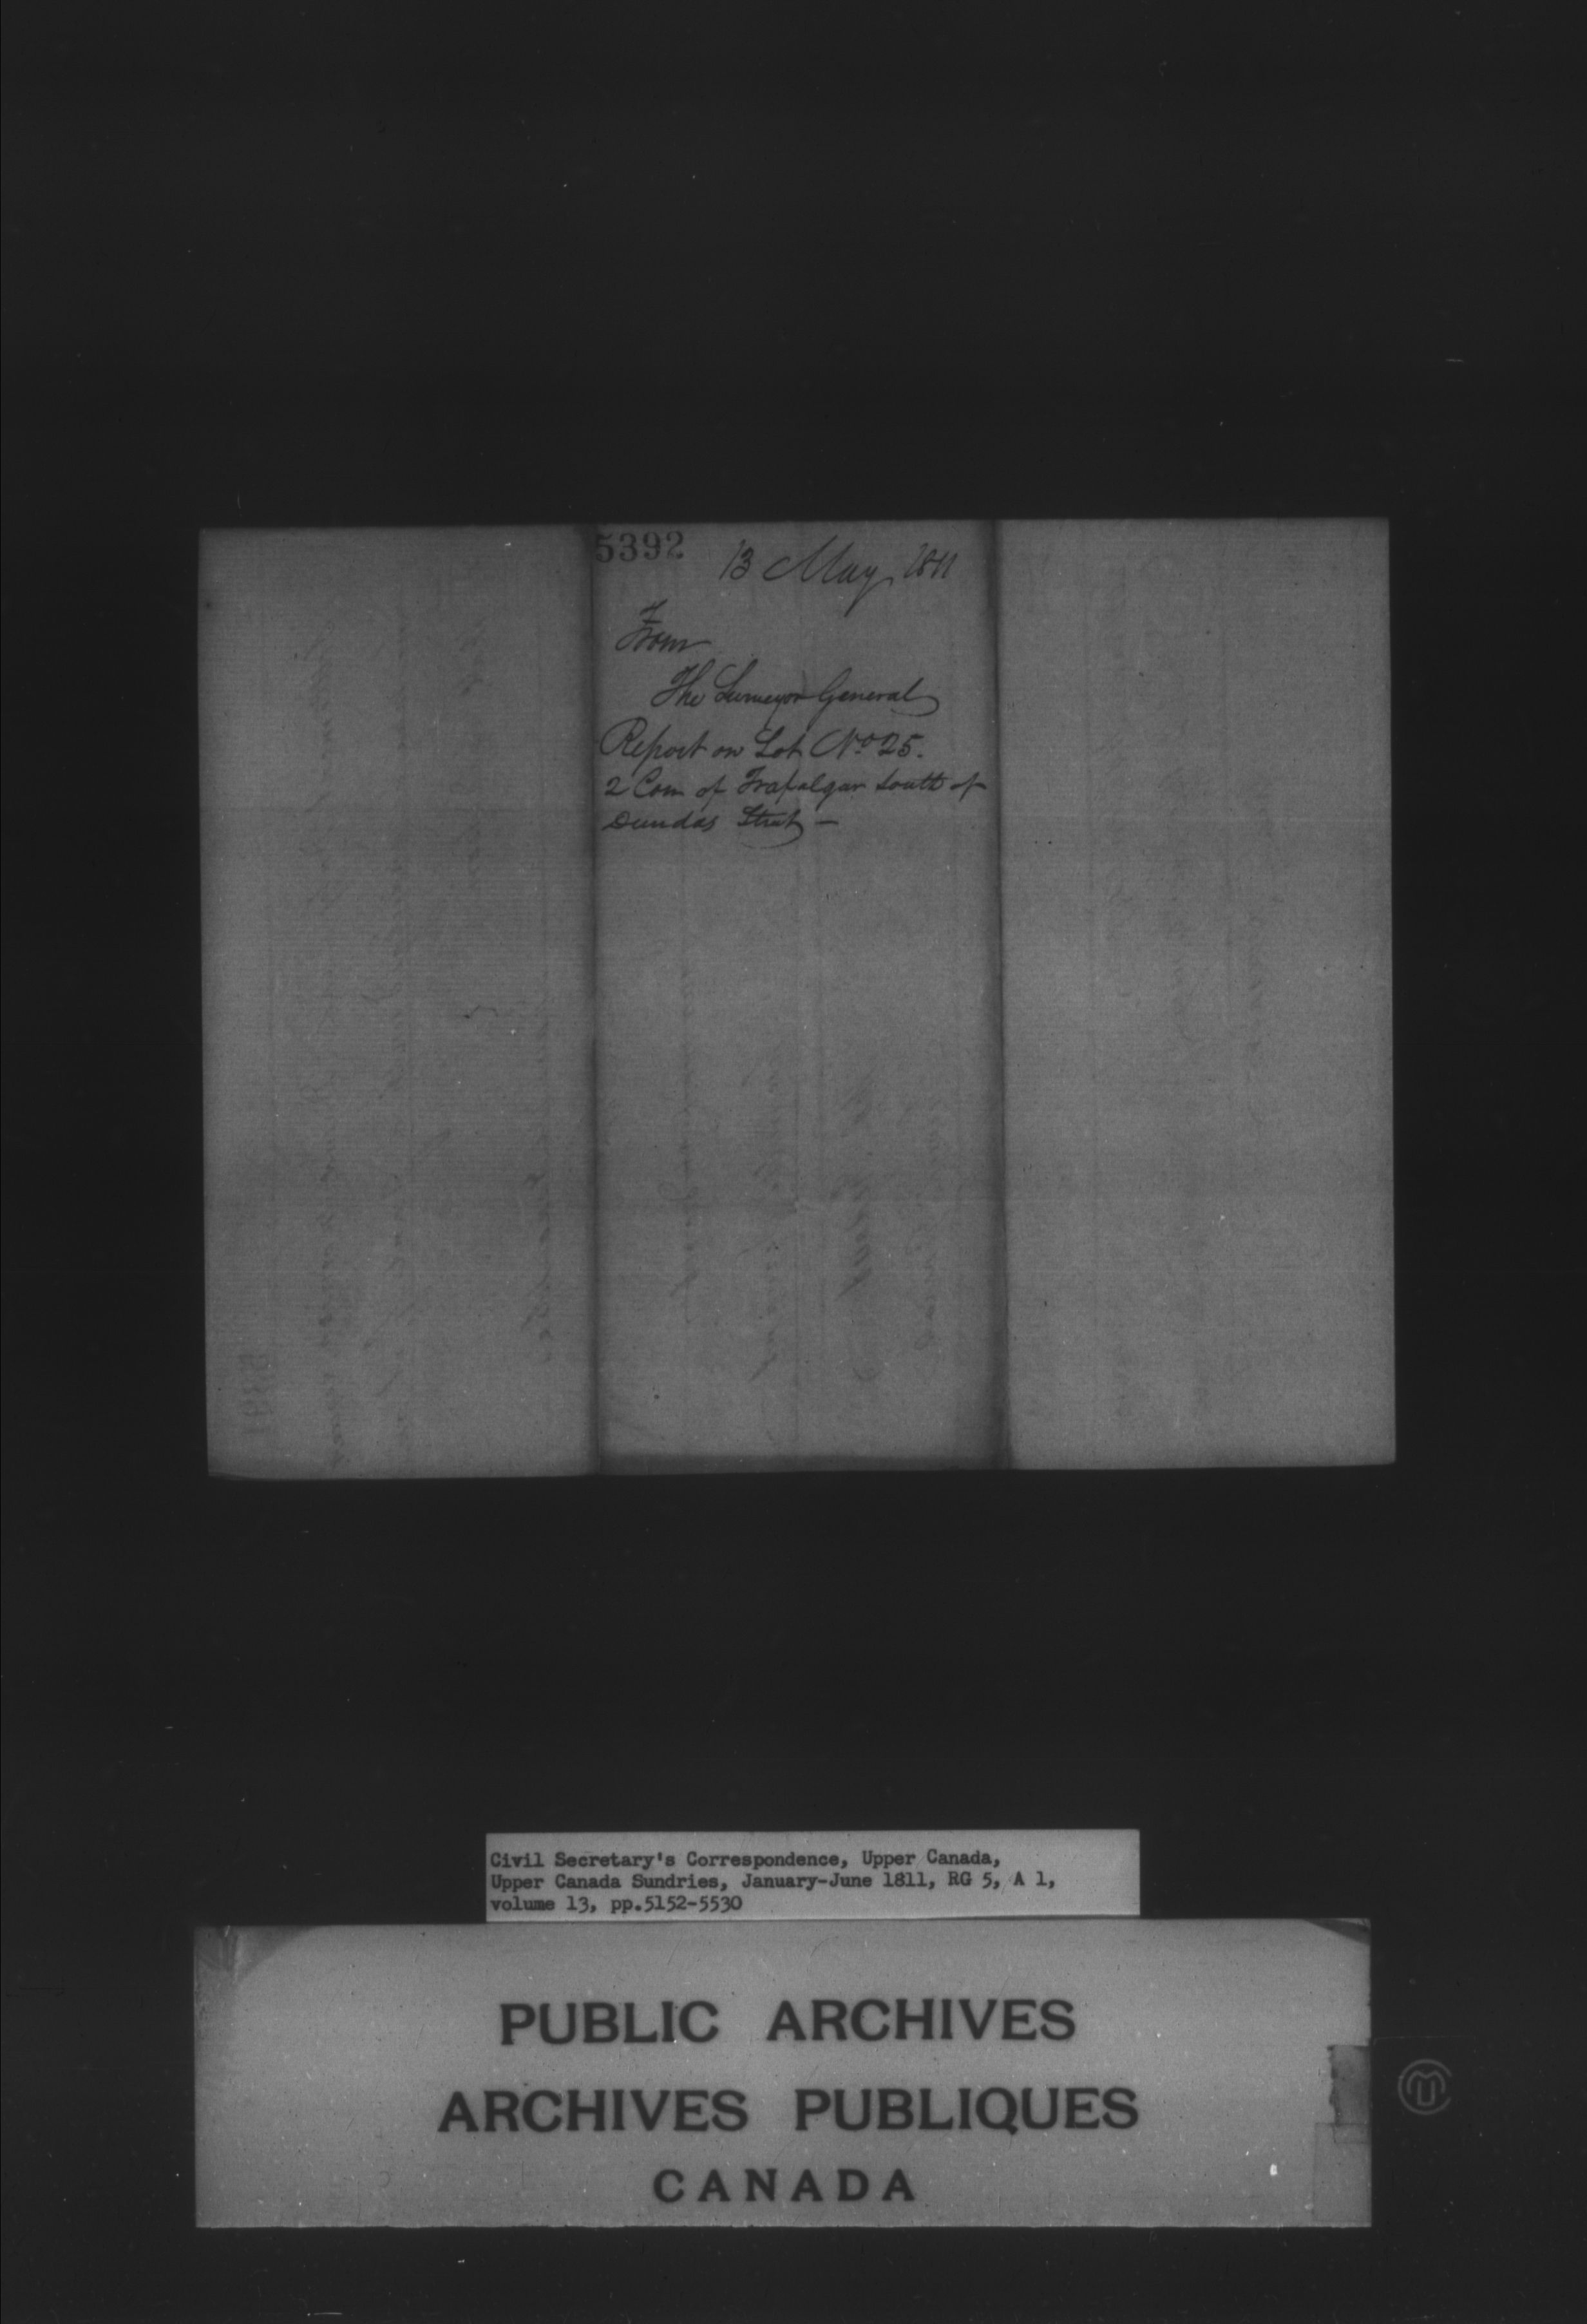 5392
13 May 1811
From
The Surveyor General
Report on Lot No 25.
2 Con of Trafalgar South of
Dundas Street —
Civil Secretary's Correspondence, Upper Canada,
Upper Canada Sundries, January-June 1811, RG 5, A 1,
volume 13, pp.5152-5530
PUBLIC ARCHIVES
ARCHIVES PUBLIQUES
CANADA